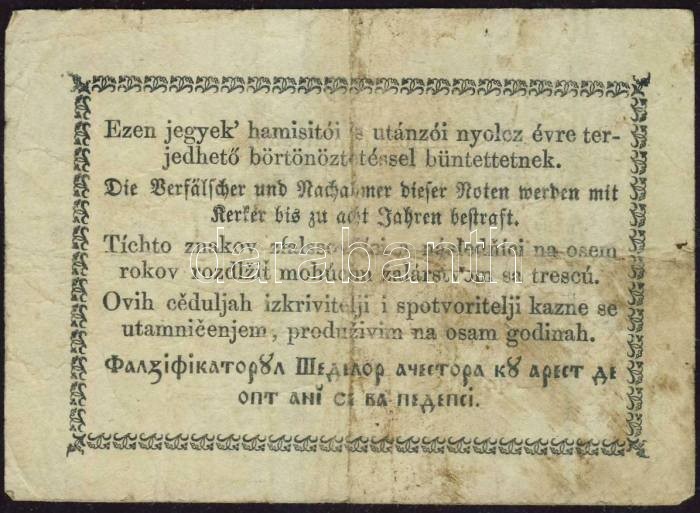 Ezen jegyek’ hamisitói s utánzói nyolcz évre ter-
jedhető börtönöztetéssel büntettetnek.
Die Verfälscher und Nachahmer dieser Noten werden mit
Kerker bis zu acht Jahren bestraft.
Tíchto znakov následníci na osem
rokov rozdlžiť mohúcom žalárstvom sa trescú.
darabanti
Ovih cĕduljah izkrivitelji i spotvoritelji kazne se
utamničenjem, produživim na osam godinah.
Фалꙁіфікаторꙋл Шеделор ачестора кꙋ арест де
опт анї се ва педепсі.